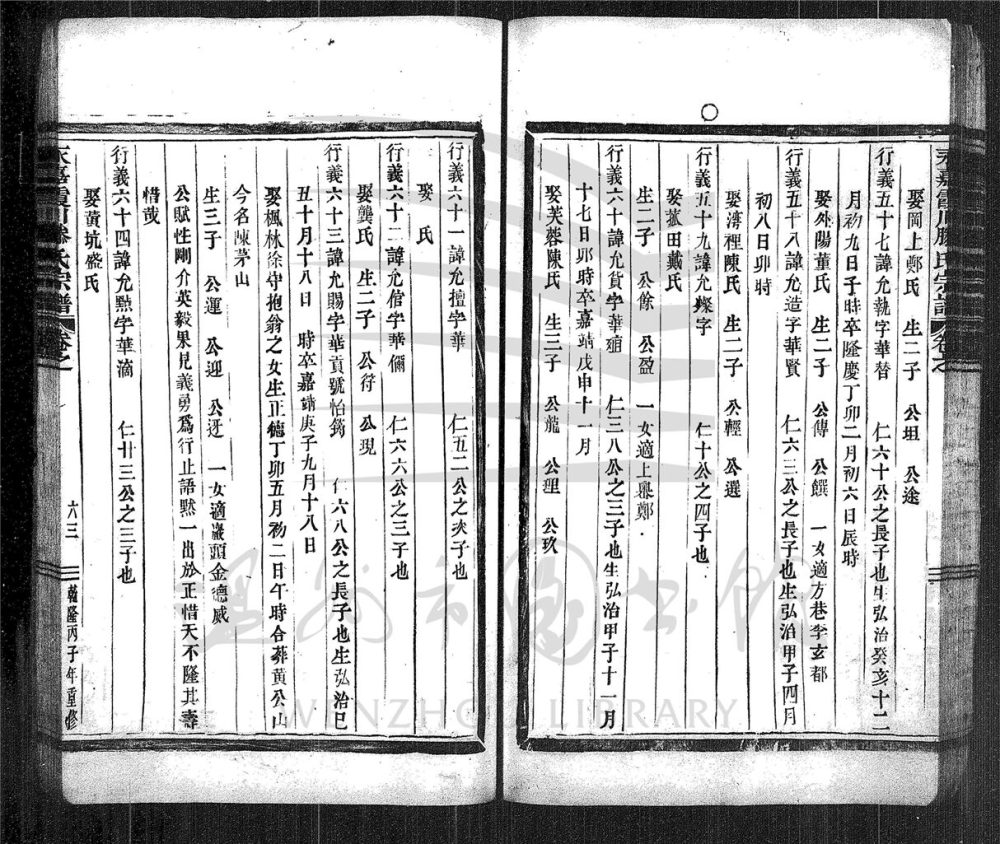 永嘉霞川滕氏宗譜 卷之一
娶岡上鄭氏 生二子 公坦 公途
行義五十七諱允執字華替 仁六十公之長子也生弘治癸亥十二
月初九日子時卒隆慶丁卯二月初六日辰時
娶外陽董氏 生二子 公傳 公饌 一女適方巷李玄都
行義五十八諱允造字華賢 仁六三公之長子也生弘治甲子四月
初八日卯時
娶灣裡陳氏 生二子 公輕 公選
行義五十九諱允燦字 仁十公之四子也
娶菰田戴氏
生二子 公餘 公盈 一女適上 鄭
行義六十諱允貨字華殖 仁三八公之三子也生弘治甲子十一月
十七日卯時卒嘉靖戊申十一月
娶芙蓉陳氏 生三子 公龍 公理 公玖
行義六十一諱允擅字華 仁五二公之次子也
娶 氏
行義六十二諱允倌字華儞 仁六六公之三子也
娶龔氏 生二子 公符 公現
行義六十三諱允賜字華貢號怡筠 仁六八公之長子也生弘治巳
丑十月十八日 時卒嘉靖庚子九月十八日
娶楓林徐守抱翁之女生正德丁卯五月初二日午時合葬黃公山
今名陳茅山
生三子 公運 公迎 公迓 一女適巖頭金德威
公賦性剛介英毅果見義勇爲行止語默一出於正惜天不隆其壽
惜哉
行義六十四諱允點字華滴 仁廿三公之三子也
娶黃坑盛氏
永嘉霞川滕氏宗譜 卷之一 六三 乾隆丙子年重修
WENZHOU LIBRARY